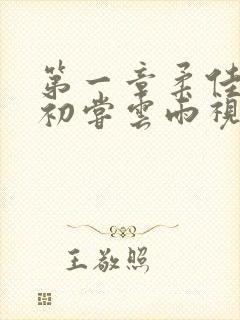 第一章柔佳
初尝雲雨視
王敬照